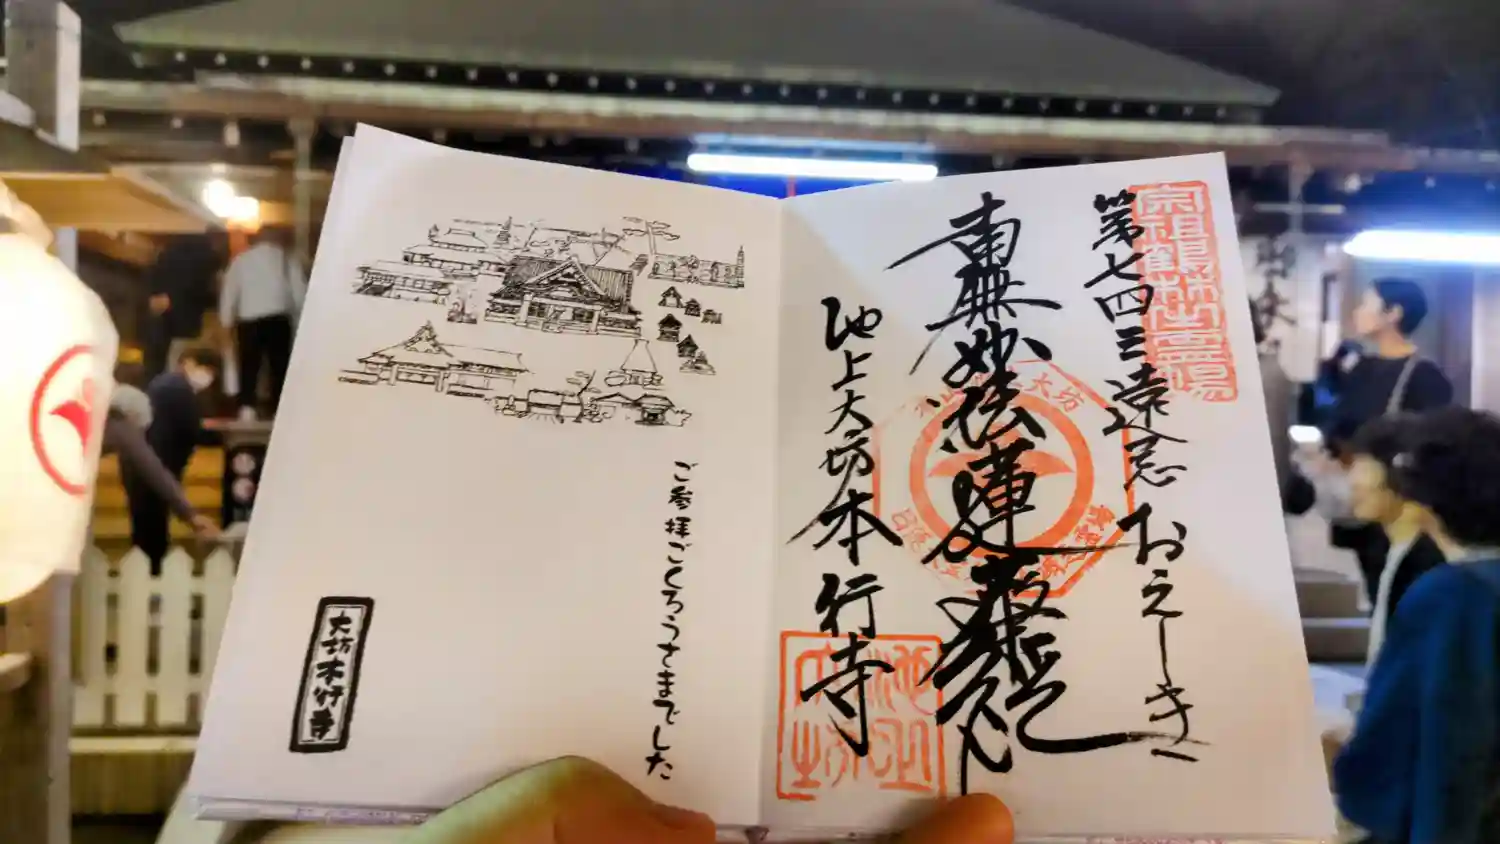 宗祖鶴林之霊場
第七四三遠忌 おえしき
南無妙法蓮華経
大坊
池上大坊本行寺
ご参拝ごくろうさまでした
大坊本行寺